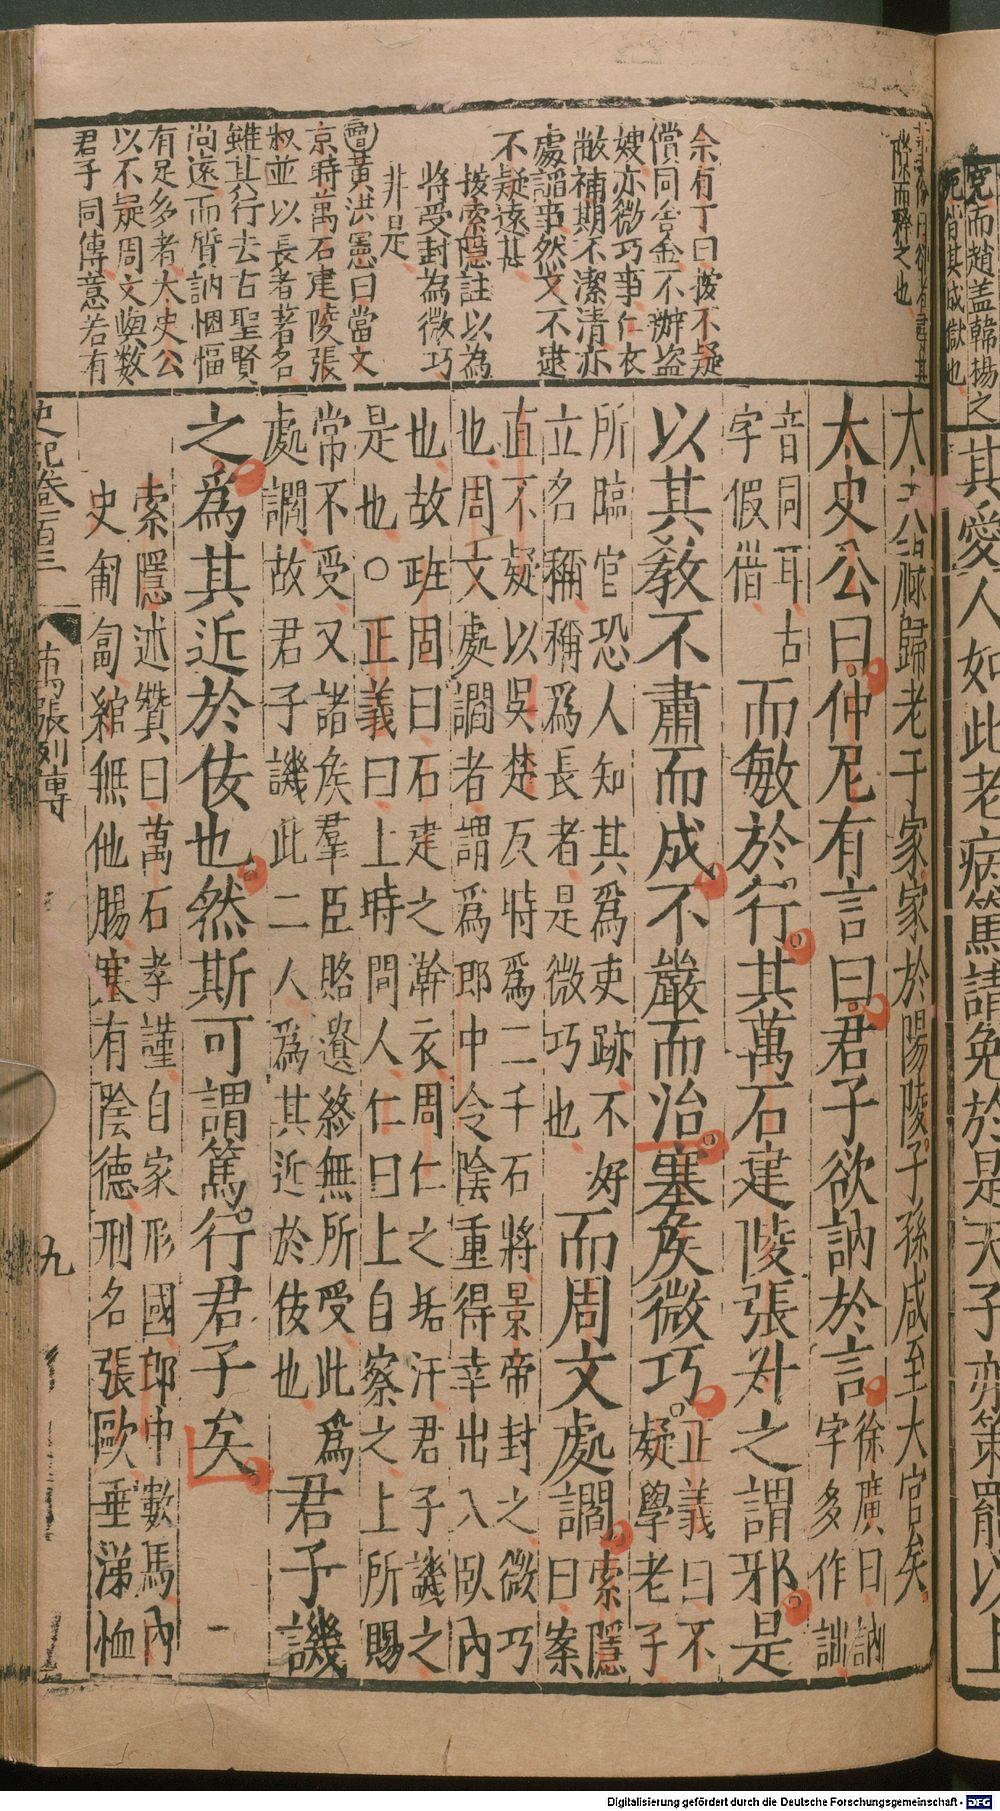 冤而趙盖韓楊之
死皆其成獄也
其愛人如此老病篤請免於是天子亦策罷以上
隙而釋之也
余有丁曰按不疑
償同舍金不辦盜
嫂亦微巧事仁衣
敝補期不潔清亦
處謟事然文不逮
不疑遠甚
按索隱註以為
將受封為微巧
非是
曾黃洪憲曰當文
京時萬石建陵張
叔並以長者著名
雖其行去古聖賢
尚遠而質訥悃愊
有足多者太史公
以不疑周文與數
君子同傳意若有
大夫公祿歸老于家家於陽陵子孫咸至大官矣
太史公曰仲尼有言曰君子欲訥於言徐廣曰訥
字多作詘
音同耳古
字假借
而敏於行其萬石建陵張叔之謂邪是
以其教不肅而成不嚴而治塞矦微巧正義曰不
疑學老子
所臨官恐人知其爲吏跡不好
立名稱稱爲長者是微巧也
而周文處讇索隱
曰案
直不疑以吳楚反時爲二千石將景帝封之微巧
也周文處讇者謂爲郎中令陰重得幸出入臥內
也故班固曰石建之澣衣周仁之垢汗君子譏之
是也○正義曰上時問人仁曰上自察之上所賜
常不受又諸矦羣臣賂遺終無所受此爲
處讇故君子譏此二人爲其近於佞也
君子譏
之爲其近於佞也然斯可謂篤行君子矣
索隱述贊曰萬石孝謹自家形國郎中數馬內
史匍匐綰無他腸塞有陰德刑名張歐垂涕恤
史記卷一百三
萬張列傳
九
Digitalisierung gefördert durch die Deutsche Forschungsgemeinschaft - DFG